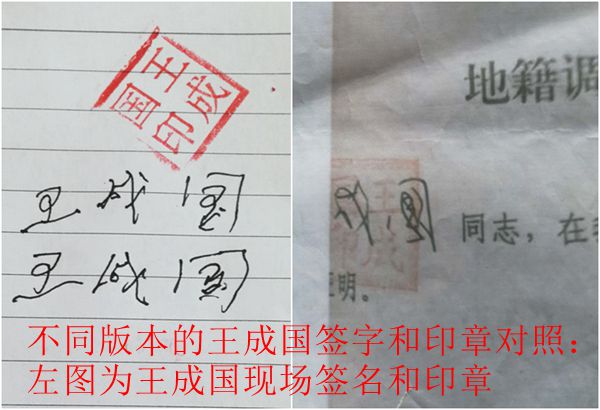 王成
国印
王成国
王成国
地籍调
成国 同志，在
王成
明。
不同版本的王成国签字和印章对照：
左图为王成国现场签名和印章